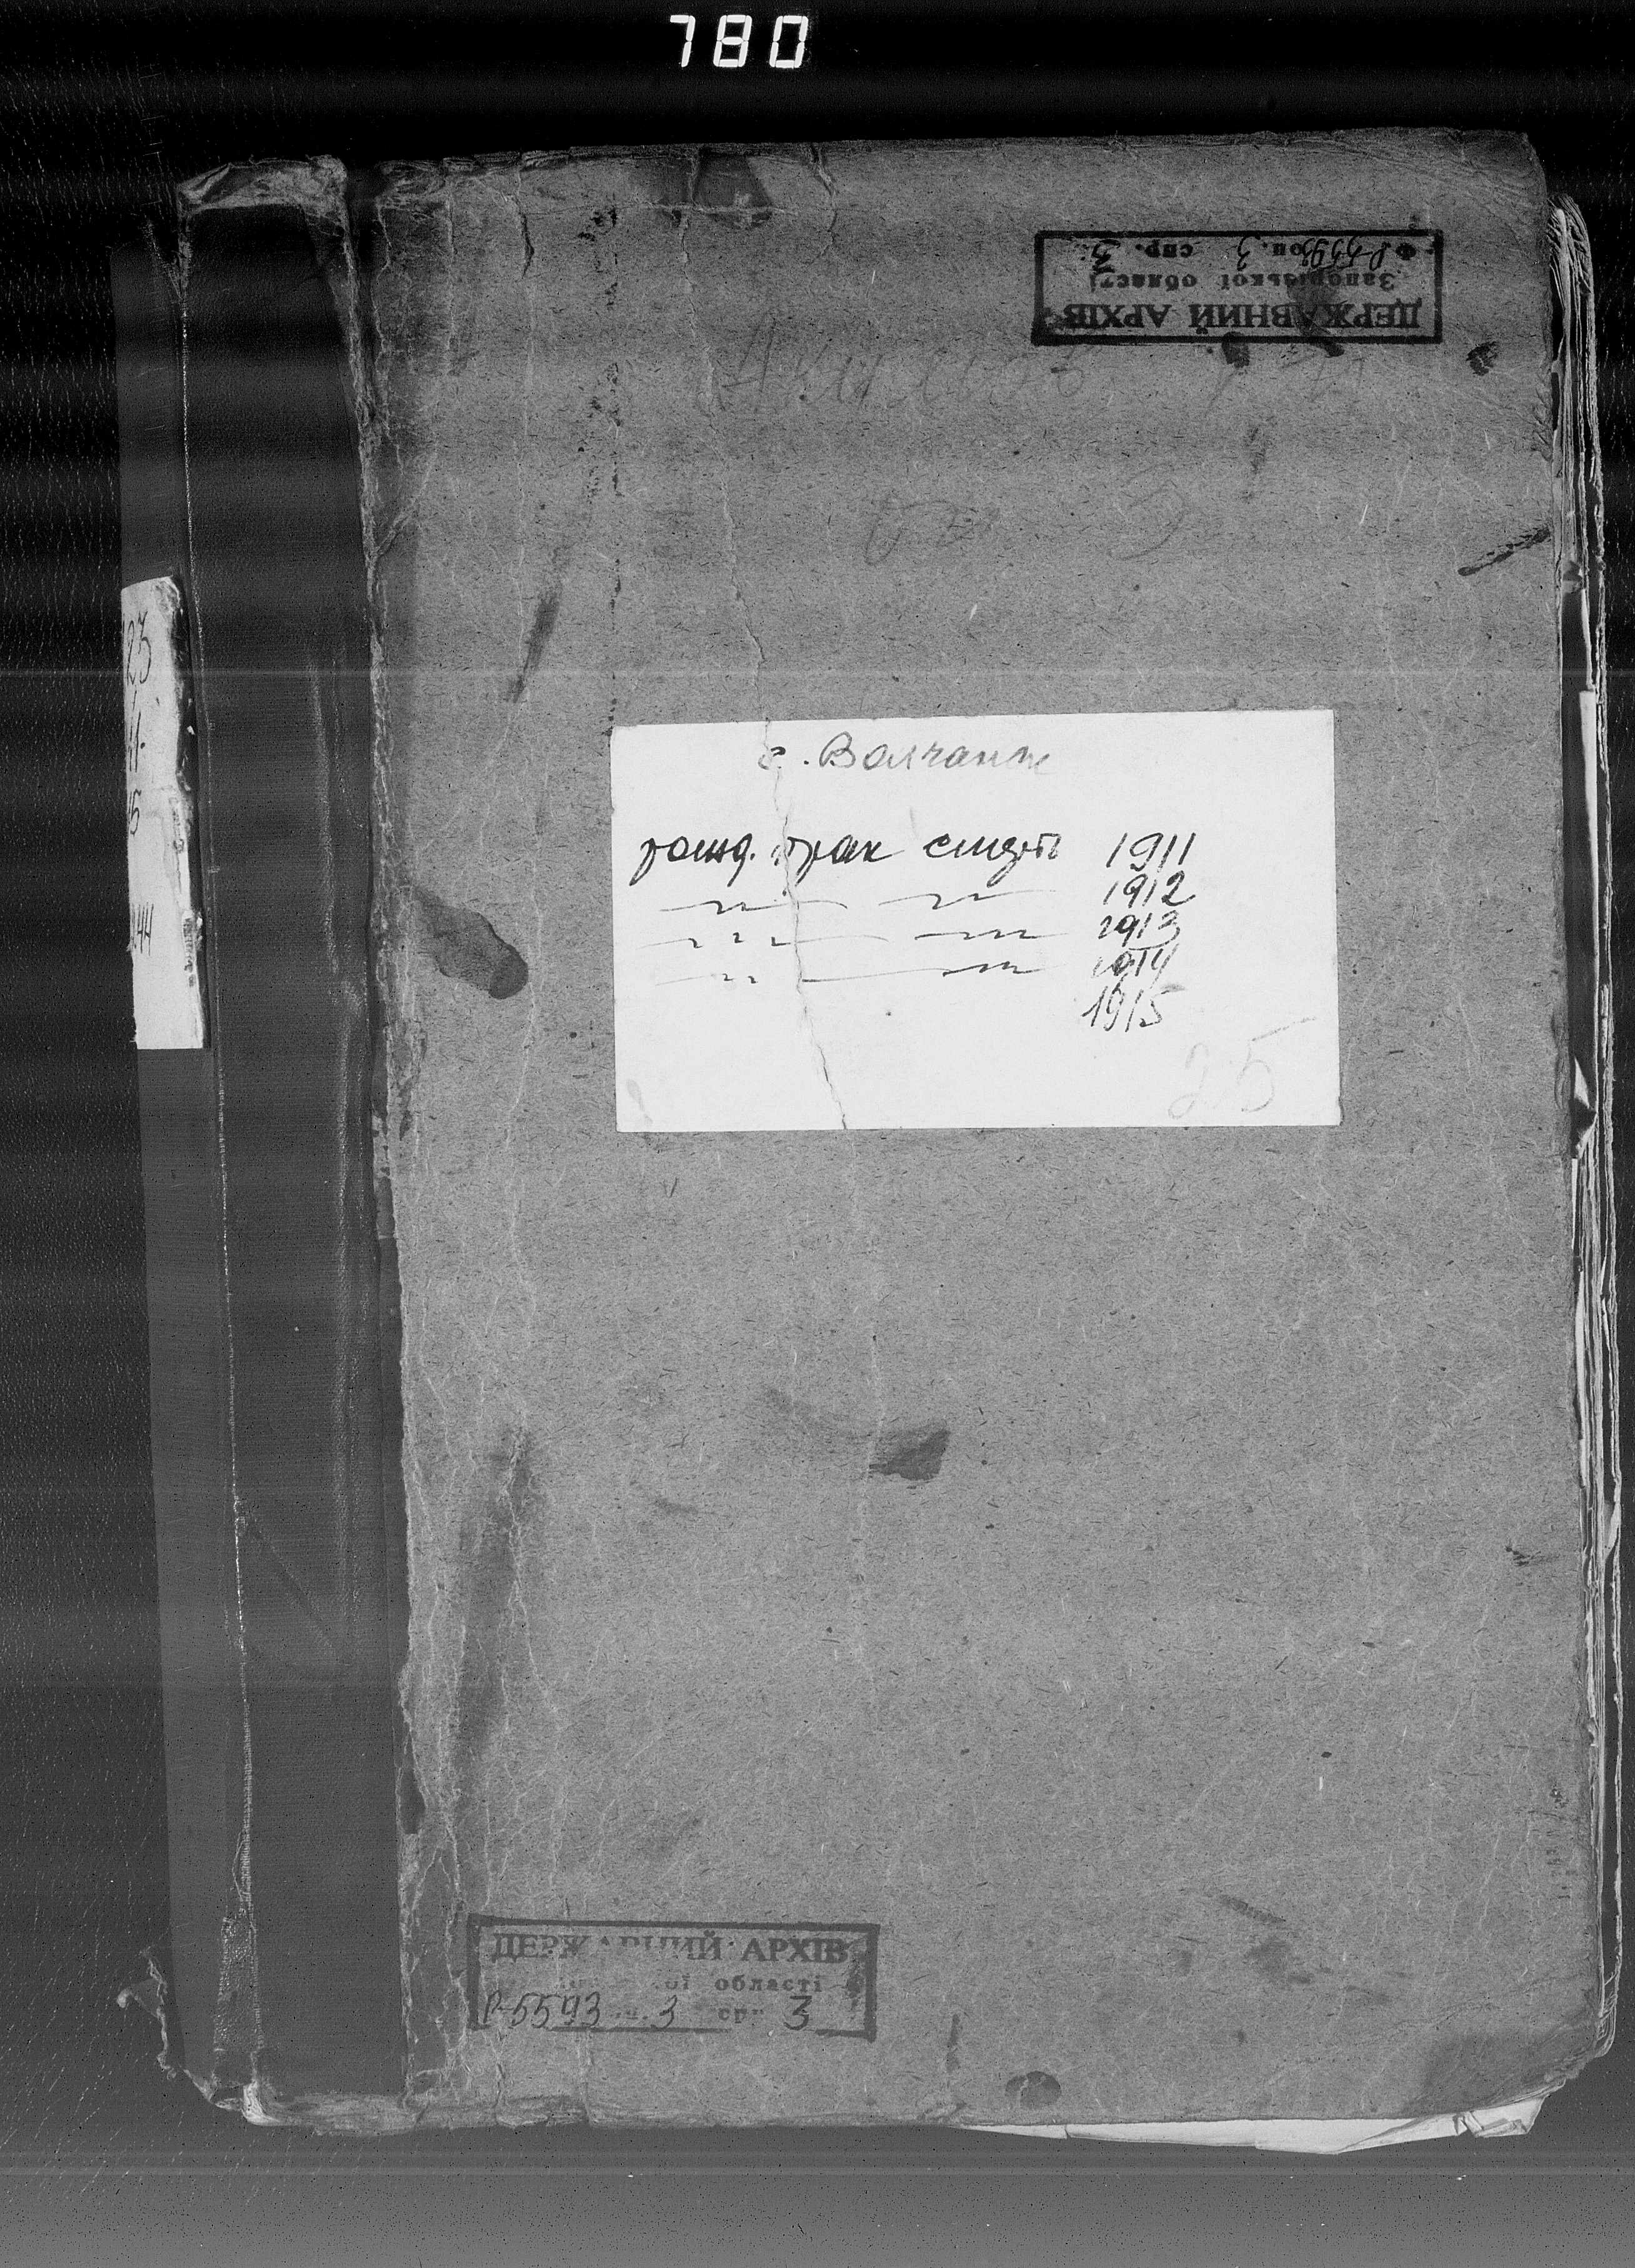 780
ДЕРЖАВНИЙ АРХІВ
Запорізької області
Ф. Р-5593 оп. 3 спр. 3
с. Волчанск
рожд. брак смерть 1911
—〃— —〃— 1912
—〃— —〃— 1913
—〃— —〃— 1914
1915
25
23
11.
15
44
ДЕРЖАВНИЙ АРХІВ
області
Р-5593 3 спр 3